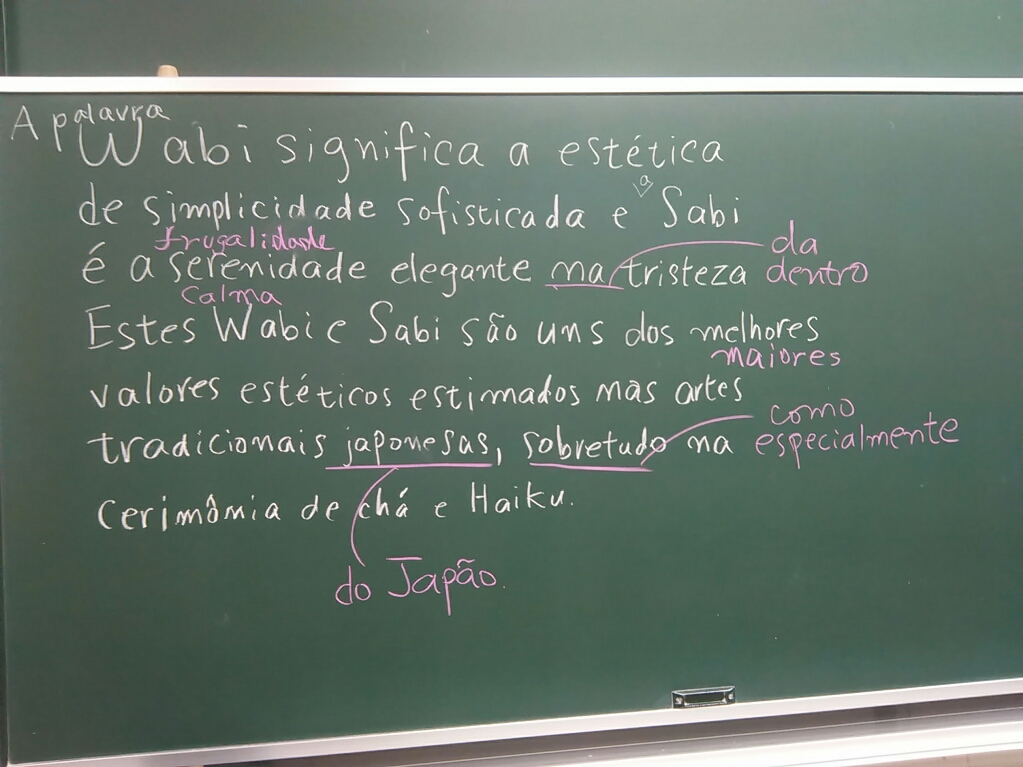 A palavra
Wabi significa a estética
a
de simplicidade sofisticada e Sabi
frugalidade
da
é a serenidade elegante na tristeza dentro
calma
Estes Wabi e Sabi são uns dos melhores
maiores
valores estéticos estimados nas artes
como
tradicionais japonesas, sobretudo na especialmente
cerimônia de chá e Haiku.
do Japão.